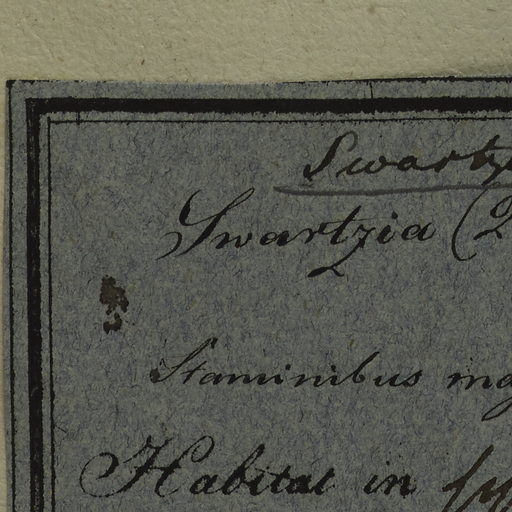 Swartz
Swartzia (2
Staminibus ma
Habitat in